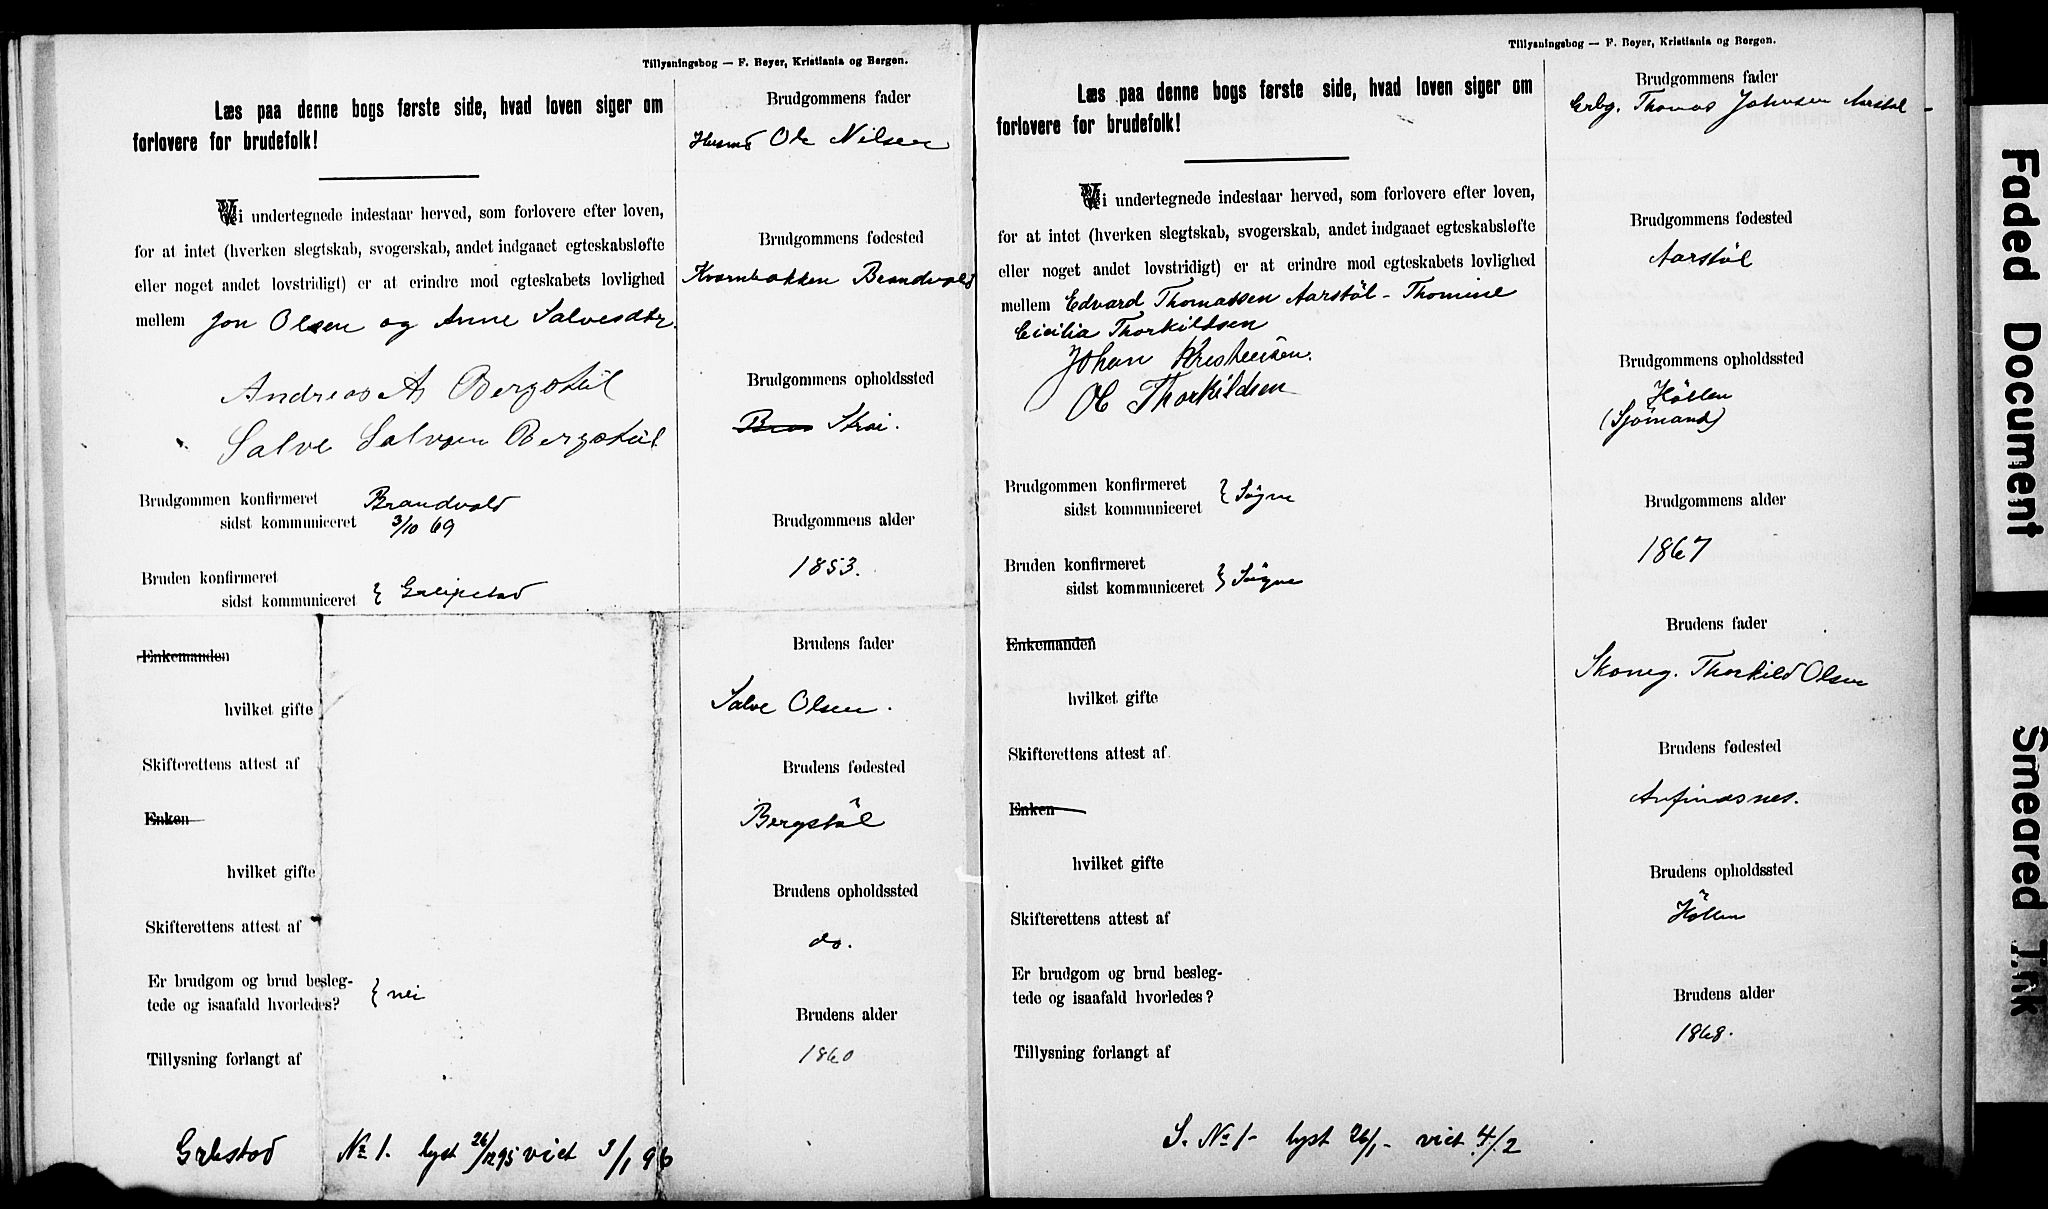 Tillysningsbog — F. Beyer, Kristiania og Bergen.
Læs paa denne bogs første side, hvad loven siger om
forlovere for brudefolk!
Vi undertegnede indestaar herved, som forlovere efter loven,
for at intet (hverken slegtskab, svogerskab, andet indgaaet egteskabsløfte
eller noget andet lovstridigt) er at erindre mod egteskabets lovlighed
mellem Jon Olsen og Anne Salvesdtr.
Andreas A Bergstøl
Salve Salvesen Bergstøl
Brudgommen konfirmeret Brandvold
sidst kommuniceret 3/10 69
Bruden konfirmeret
sidst kommuniceret } Greipstad
Enkemanden
hvilket gifte
Skifterettens attest af
Enken
hvilket gifte
Skifterettens attest af
Er brudgom og brud besleg-
tede og isaafald hvorledes? } nei
Tillysning forlangt af
Brudgommens fader
Husmd Ole Nilsen
Brudgommens fødested
Kvernbakken Brandvold
Brudgommens opholdssted
Strai.
Brudgommens alder
1853.
Brudens fader
Salve Olsen.
Brudens fødested
Bergstøl
Brudens opholdssted
do.
Brudens alder
1860
Grbstad No 1. lyst 26/12 95 viet 3/1 96
Tillysningsbog — F. Beyer, Kristiania og Bergen.
Læs paa denne bogs første side, hvad loven siger om
forlovere for brudefolk!
Vi undertegnede indestaar herved, som forlovere efter loven,
for at intet (hverken slegtskab, svogerskab, andet indgaaet egteskabsløfte
eller noget andet lovstridigt) er at erindre mod egteskabets lovlighed
mellem Edvard Thomassen Aarstöl - Thomine
Cicilia Thorkildsen
Johan Kristensen.
Ol Thorkildsen
Brudgommen konfirmeret
sidst kommuniceret } Søgne
Bruden konfirmeret
sidst kommuniceret } Søgne
Enkemanden
hvilket gifte
Skifterettens attest af
Enken
hvilket gifte
Skifterettens attest af
Er brudgom og brud besleg-
tede og isaafald hvorledes?
Tillysning forlangt af
Brudgommens fader
Thomas Johnsen Aarstöl -
Brudgommens fødested
Aarstöl
Brudgommens opholdssted
Höllen
(Sjömand)
Brudgommens alder
1867
Brudens fader
Thorkild Olsen
Brudens fødested
Anfindsnes.
Brudens opholdssted
Höllen
Brudens alder
1868.
S. No 1- lyst 26/1 - viet 4/2
Faded Document
Smeared Ink